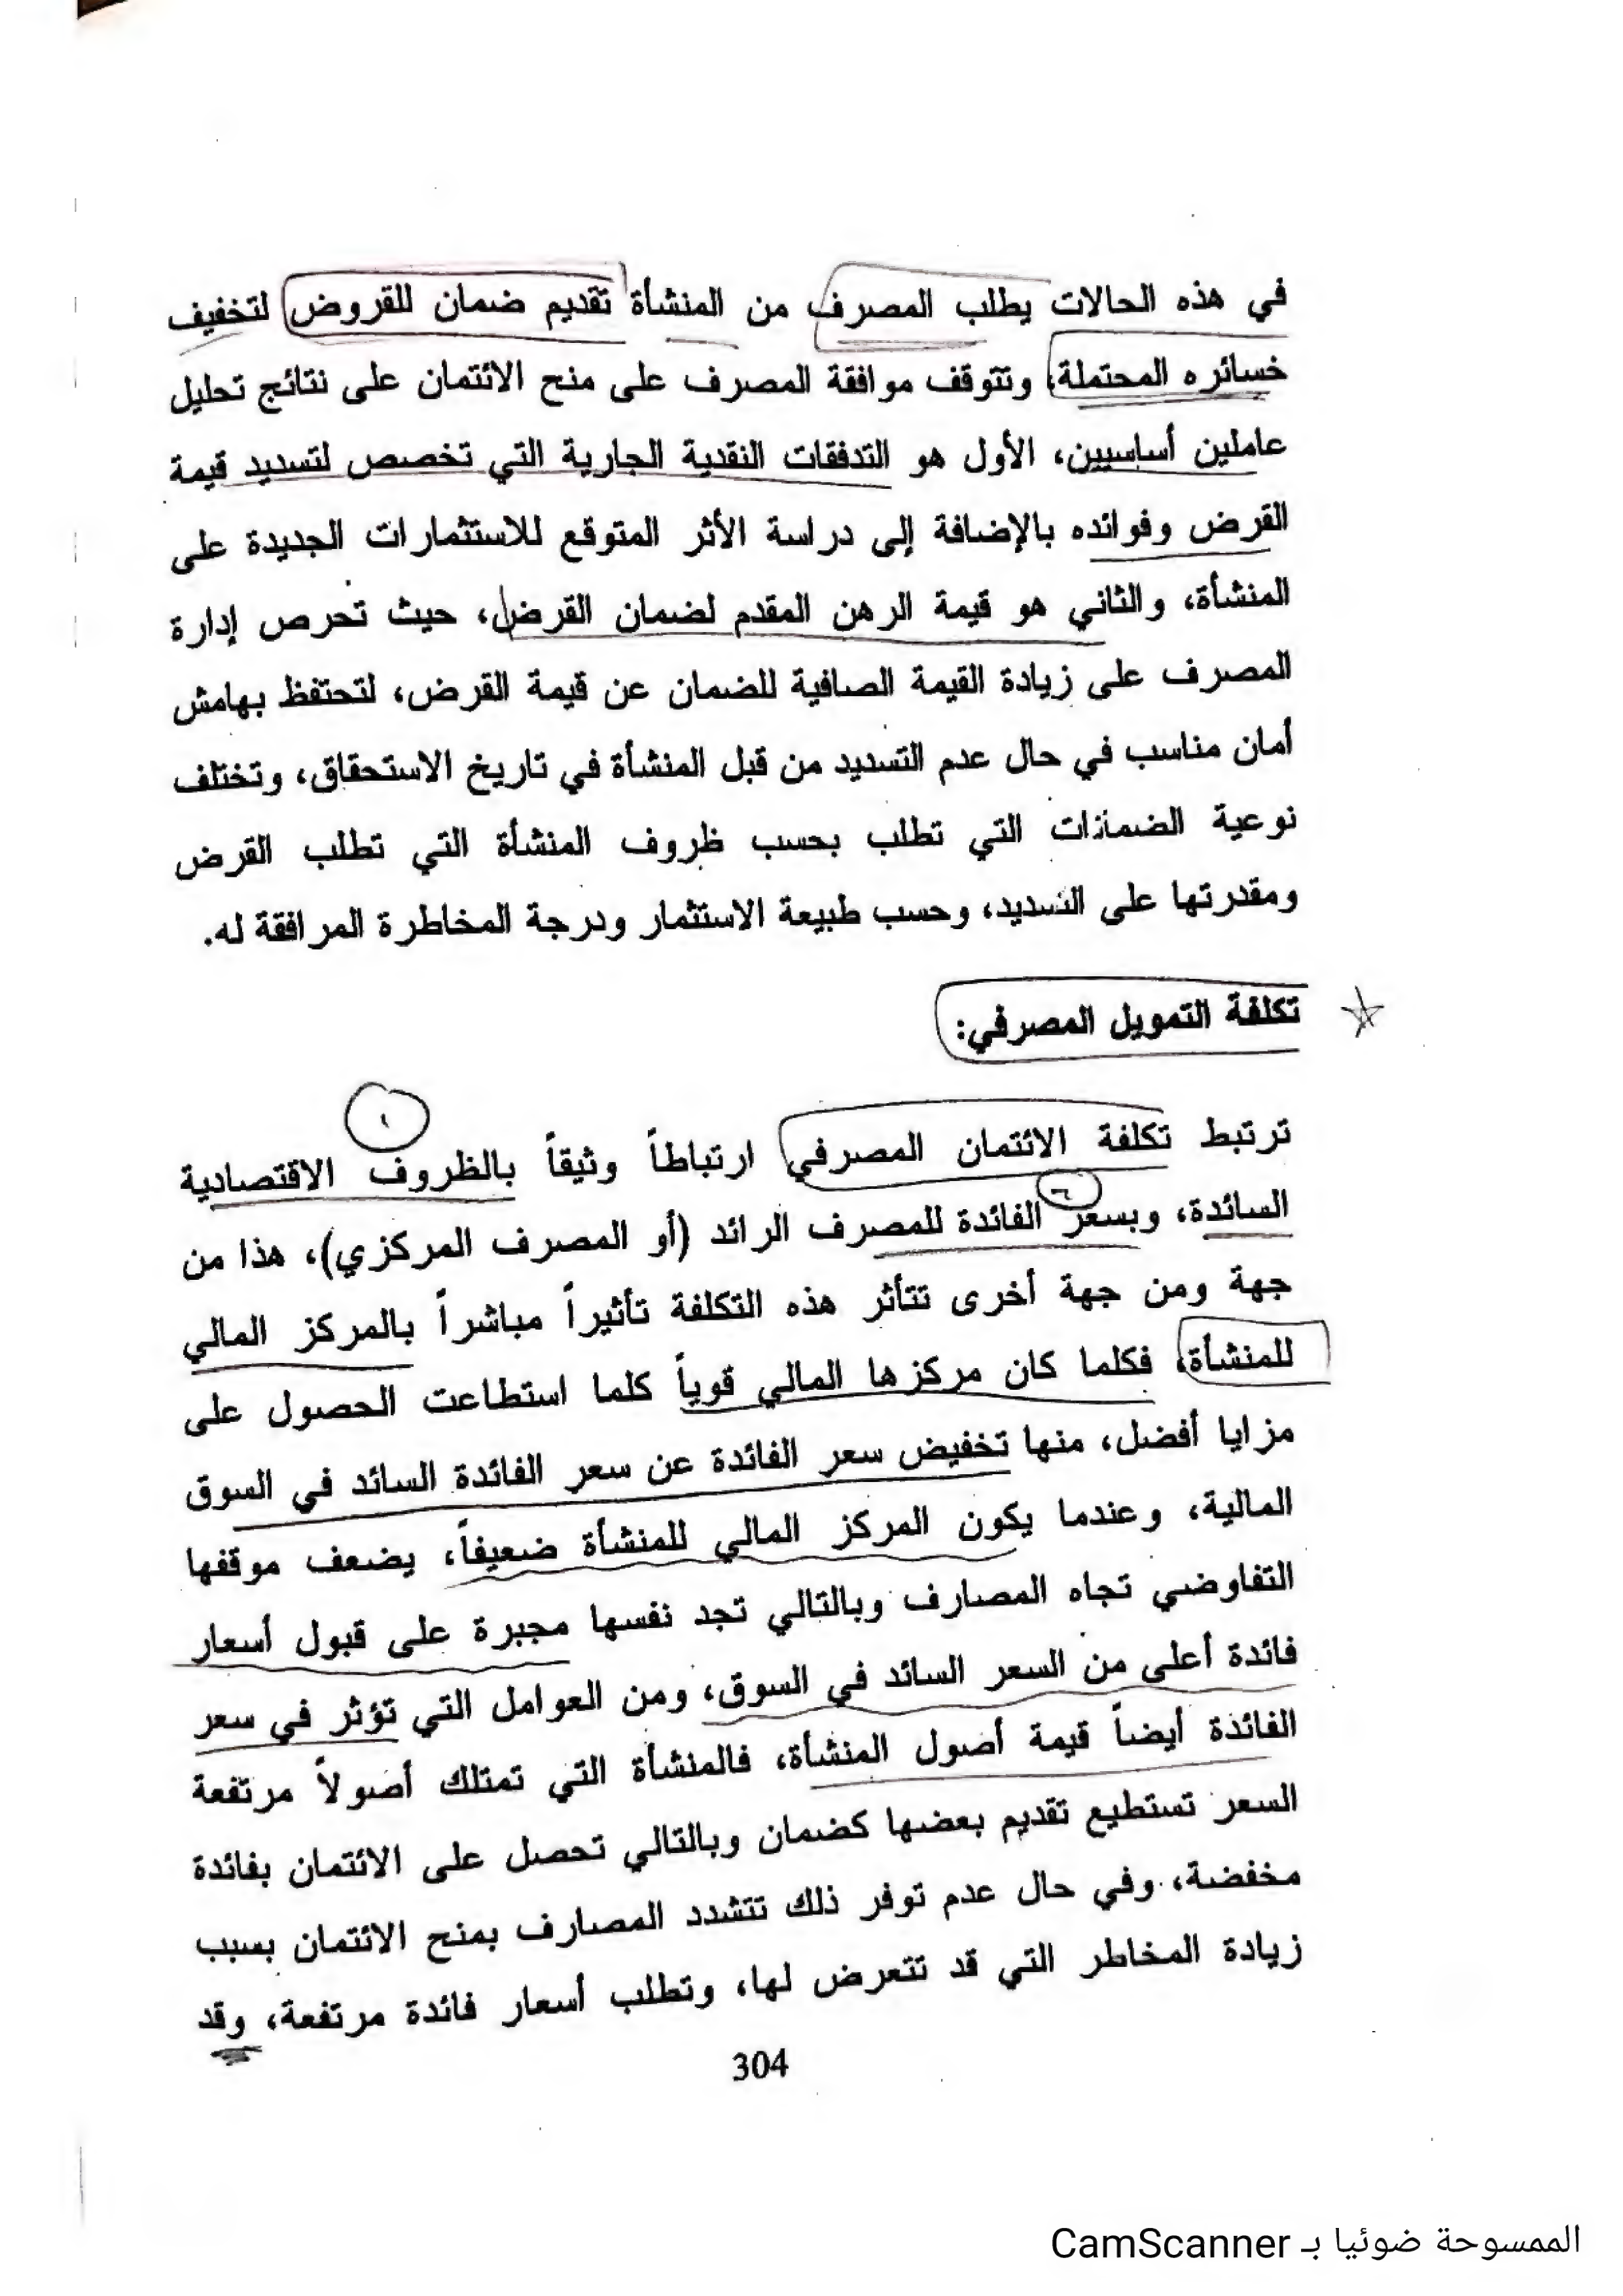 في هذه الحالات يطلب المصرف من المنشأة تقديم ضمان للقروض لتخفيف
خسائره المحتملة، وتتوقف موافقة المصرف على منح الائتمان على نتائج تحليل
عاملين أساسيين، الأول هو التدفقات النقدية الجارية التي تخصص لتسديد قيمة
القرض وفوائده بالإضافة إلى دراسة الأثر المتوقع للاستثمارات الجديدة على
المنشأة، والثاني هو قيمة الرهن المقدم لضمان القرض، حيث تحرص إدارة
المصرف على زيادة القيمة الصافية للضمان عن قيمة القرض، لتحتفظ بهامش
أمان مناسب في حال عدم التسديد من قبل المنشأة في تاريخ الاستحقاق، وتختلف
نوعية الضمانات التي تطلب بحسب ظروف المنشأة التي تطلب القرض
ومقدرتها على التسديد، وحسب طبيعة الاستثمار ودرجة المخاطرة المرافقة له.
تكلفة التمويل المصرفي:
١
ترتبط تكلفة الائتمان المصرفي ارتباطاً وثيقاً بالظروف الاقتصادية
السائدة، وبسعر الفائدة للمصرف الرائد (أو المصرف المركزي)، هذا من
جهة ومن جهة أخرى تتأثر هذه التكلفة تأثيراً مباشراً بالمركز المالي
للمنشأة، فكلما كان مركزها المالي قوياً كلما استطاعت الحصول على
مزايا أفضل، منها تخفيض سعر الفائدة عن سعر الفائدة السائد في السوق
المالية، وعندما يكون المركز المالي للمنشأة ضعيفاً، يضعف موقفها
التفاوضي تجاه المصارف وبالتالي تجد نفسها مجبرة على قبول أسعار
فائدة أعلى من السعر السائد في السوق، ومن العوامل التي تؤثر في سعر
الفائدة أيضاً قيمة أصول المنشأة، فالمنشأة التي تمتلك أصولاً مرتفعة
السعر تستطيع تقديم بعضها كضمان وبالتالي تحصل على الائتمان بفائدة
مخفضة، وفي حال عدم توفر ذلك تتشدد المصارف بمنح الائتمان بسبب
زيادة المخاطر التي قد تتعرض لها، وتطلب أسعار فائدة مرتفعة، وقد
304
الممسوحة ضوئيا بـ CamScanner